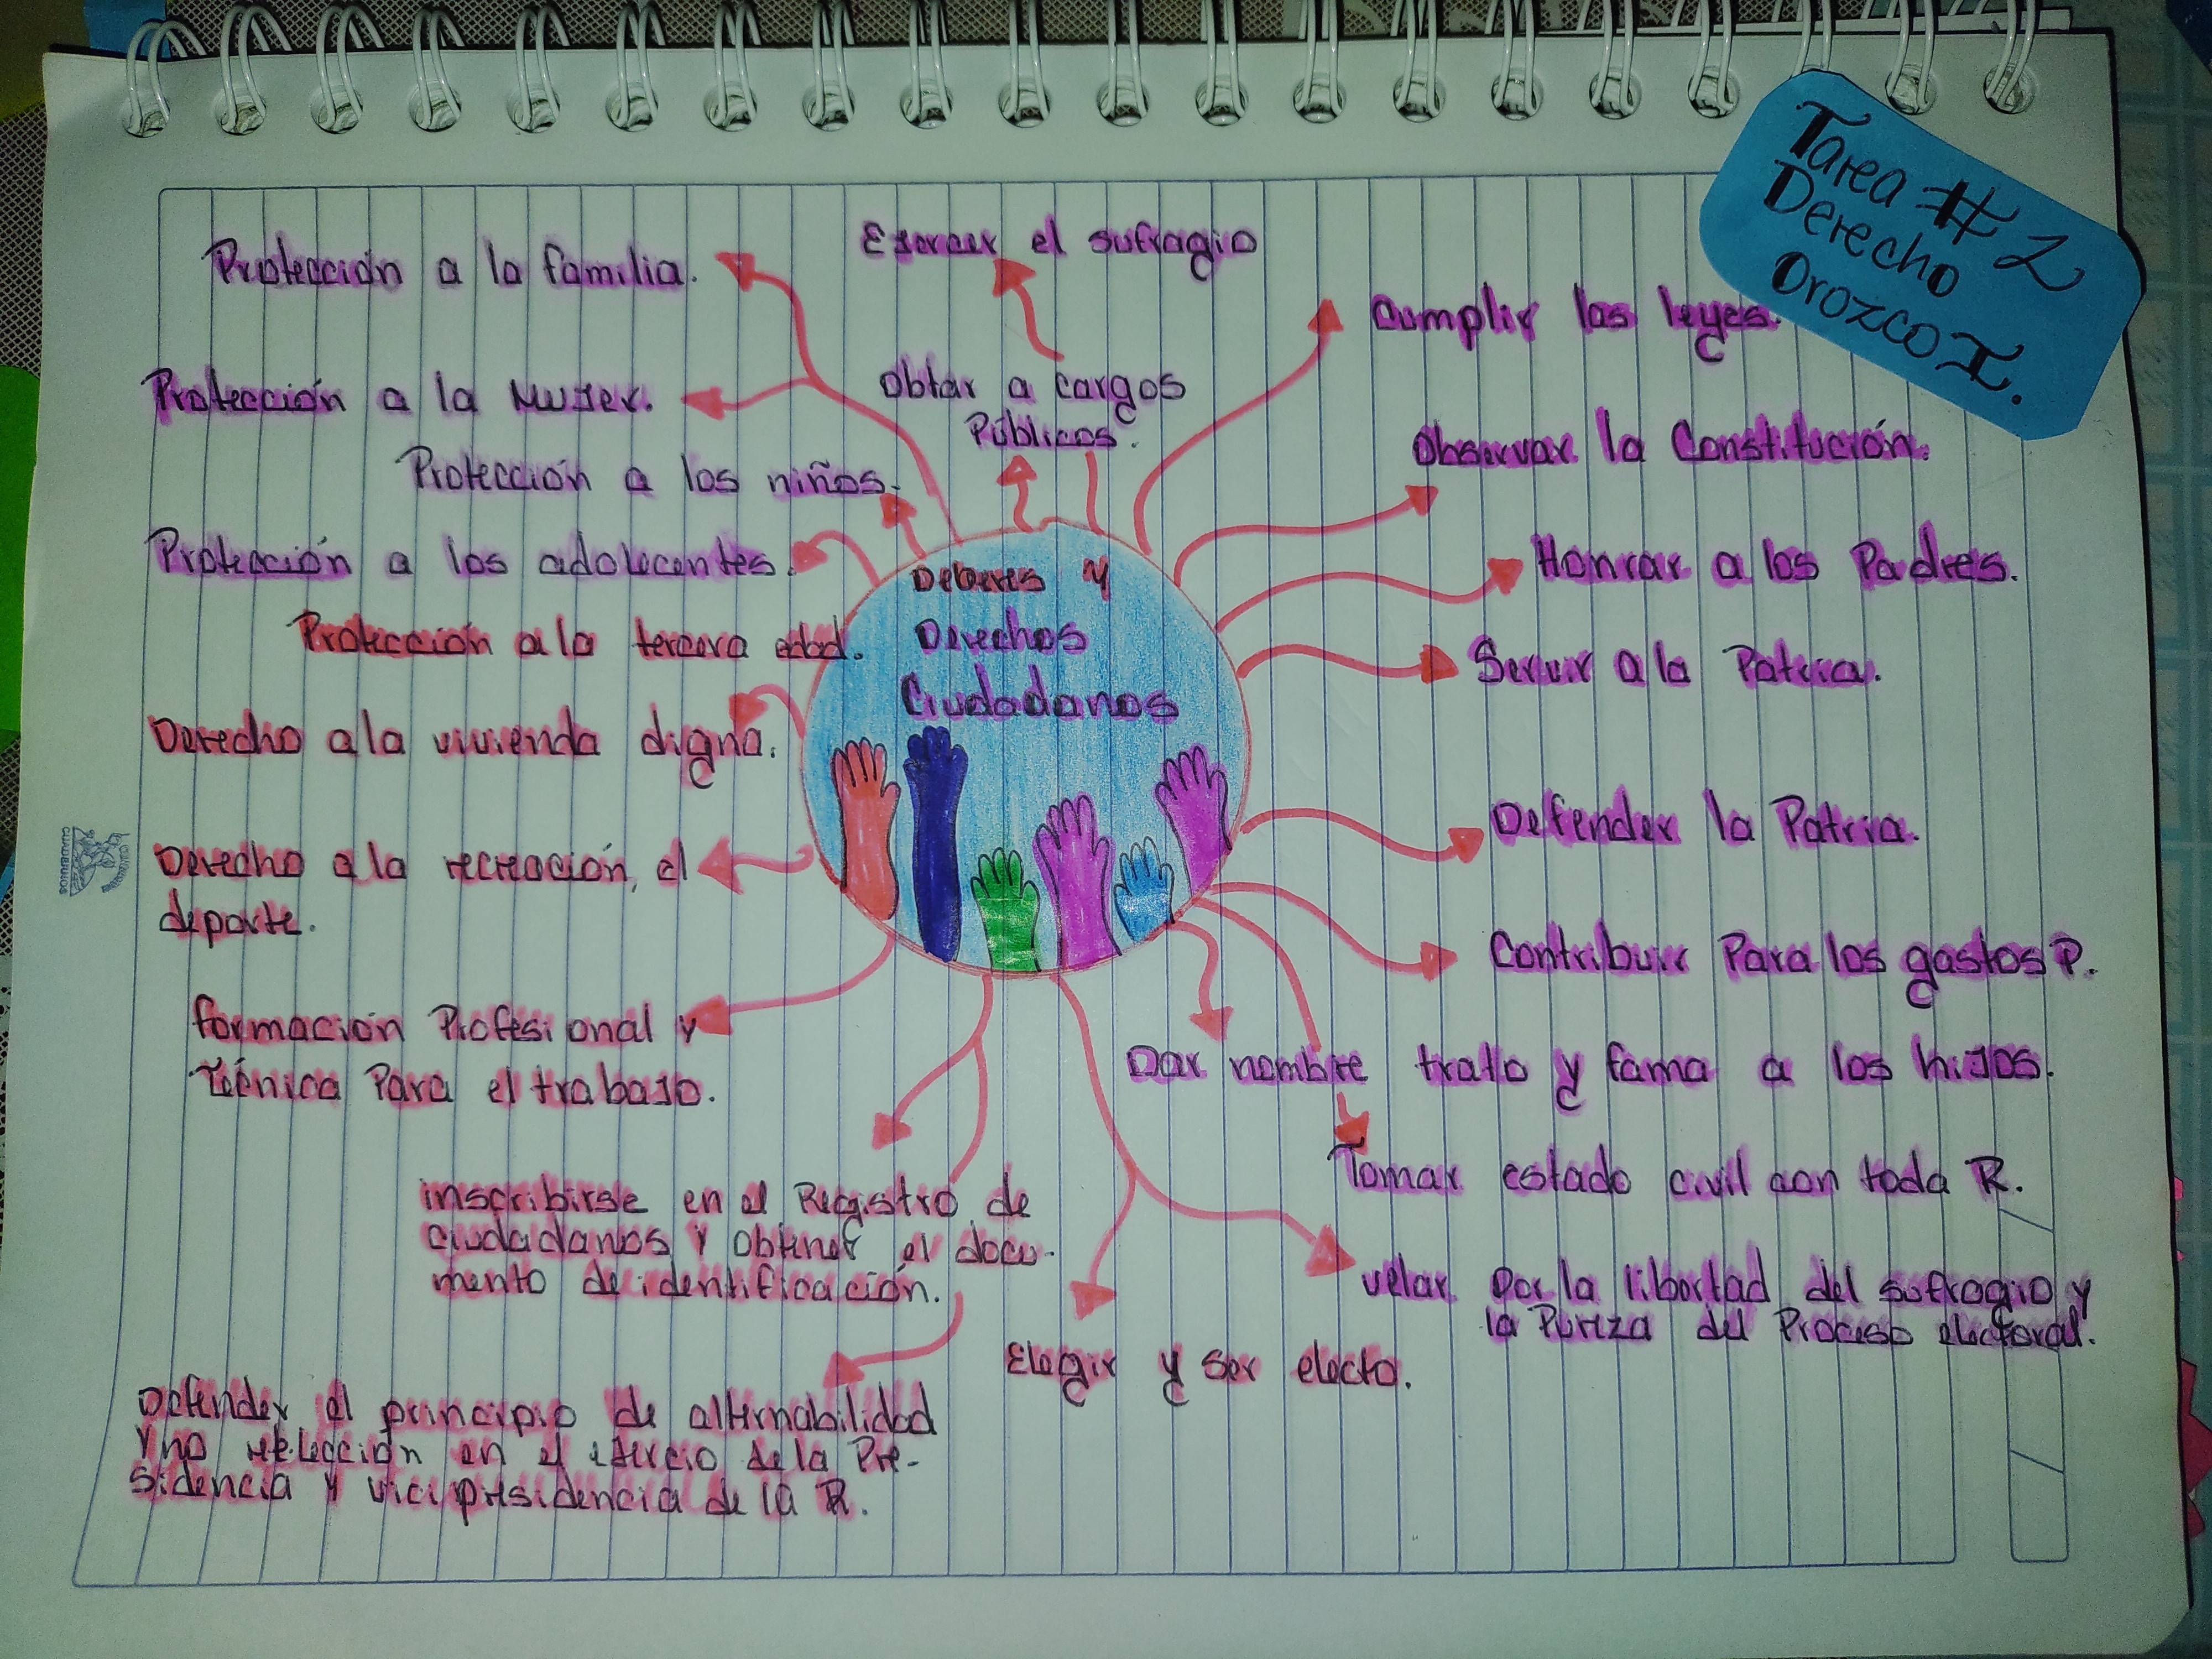 Tarea # 2
Derecho
Orozco I.
Deberes y
Derechos
Ciudadanos
Protección a la familia.
Protección a la Mujer.
Protección a los niños.
Protección a los adolecentes.
Protección a la tercera edad.
Derecho a la vivienda digna.
Derecho a la recreación, el
deporte.
formación Profesional y
Técnica Para el trabajo.
inscribirse en el Registro de
ciudadanos y obtener el docu-
mento de identificación.
Defender el principio de alternabilidad
y no relección en el
sidencia y vicipresidencia de la R.
Elegir y ser electo.
Ejercer el sufragio
Obtar a cargos
Públicos.
Cumplir las leyes.
Observar la Constitución.
Honrar a los Padres.
Servir a la Patria.
Defender la Patria.
Contribuir Para los gastos P.
Dar nombre trato y fama a los hijos.
Tomar estado civil con toda R.
velar Por la libertad del sufragio y
la Pureza del Proceso electoral.